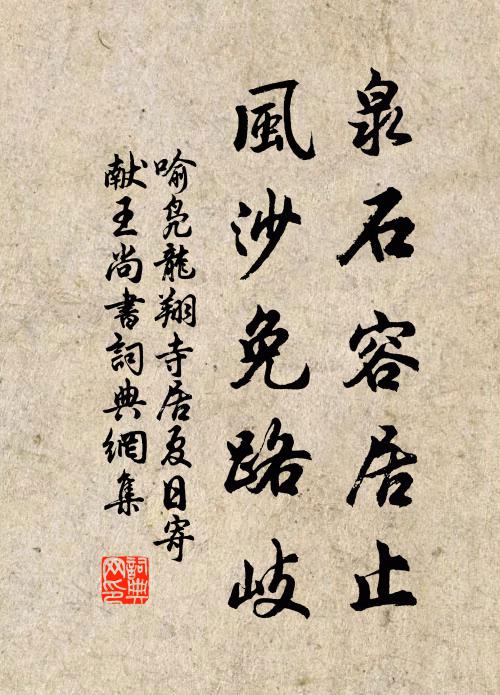 泉石容居止
風沙免路岐
喻凫龍翔寺居夏日寄
献王尚書詞典網集
詞典網印